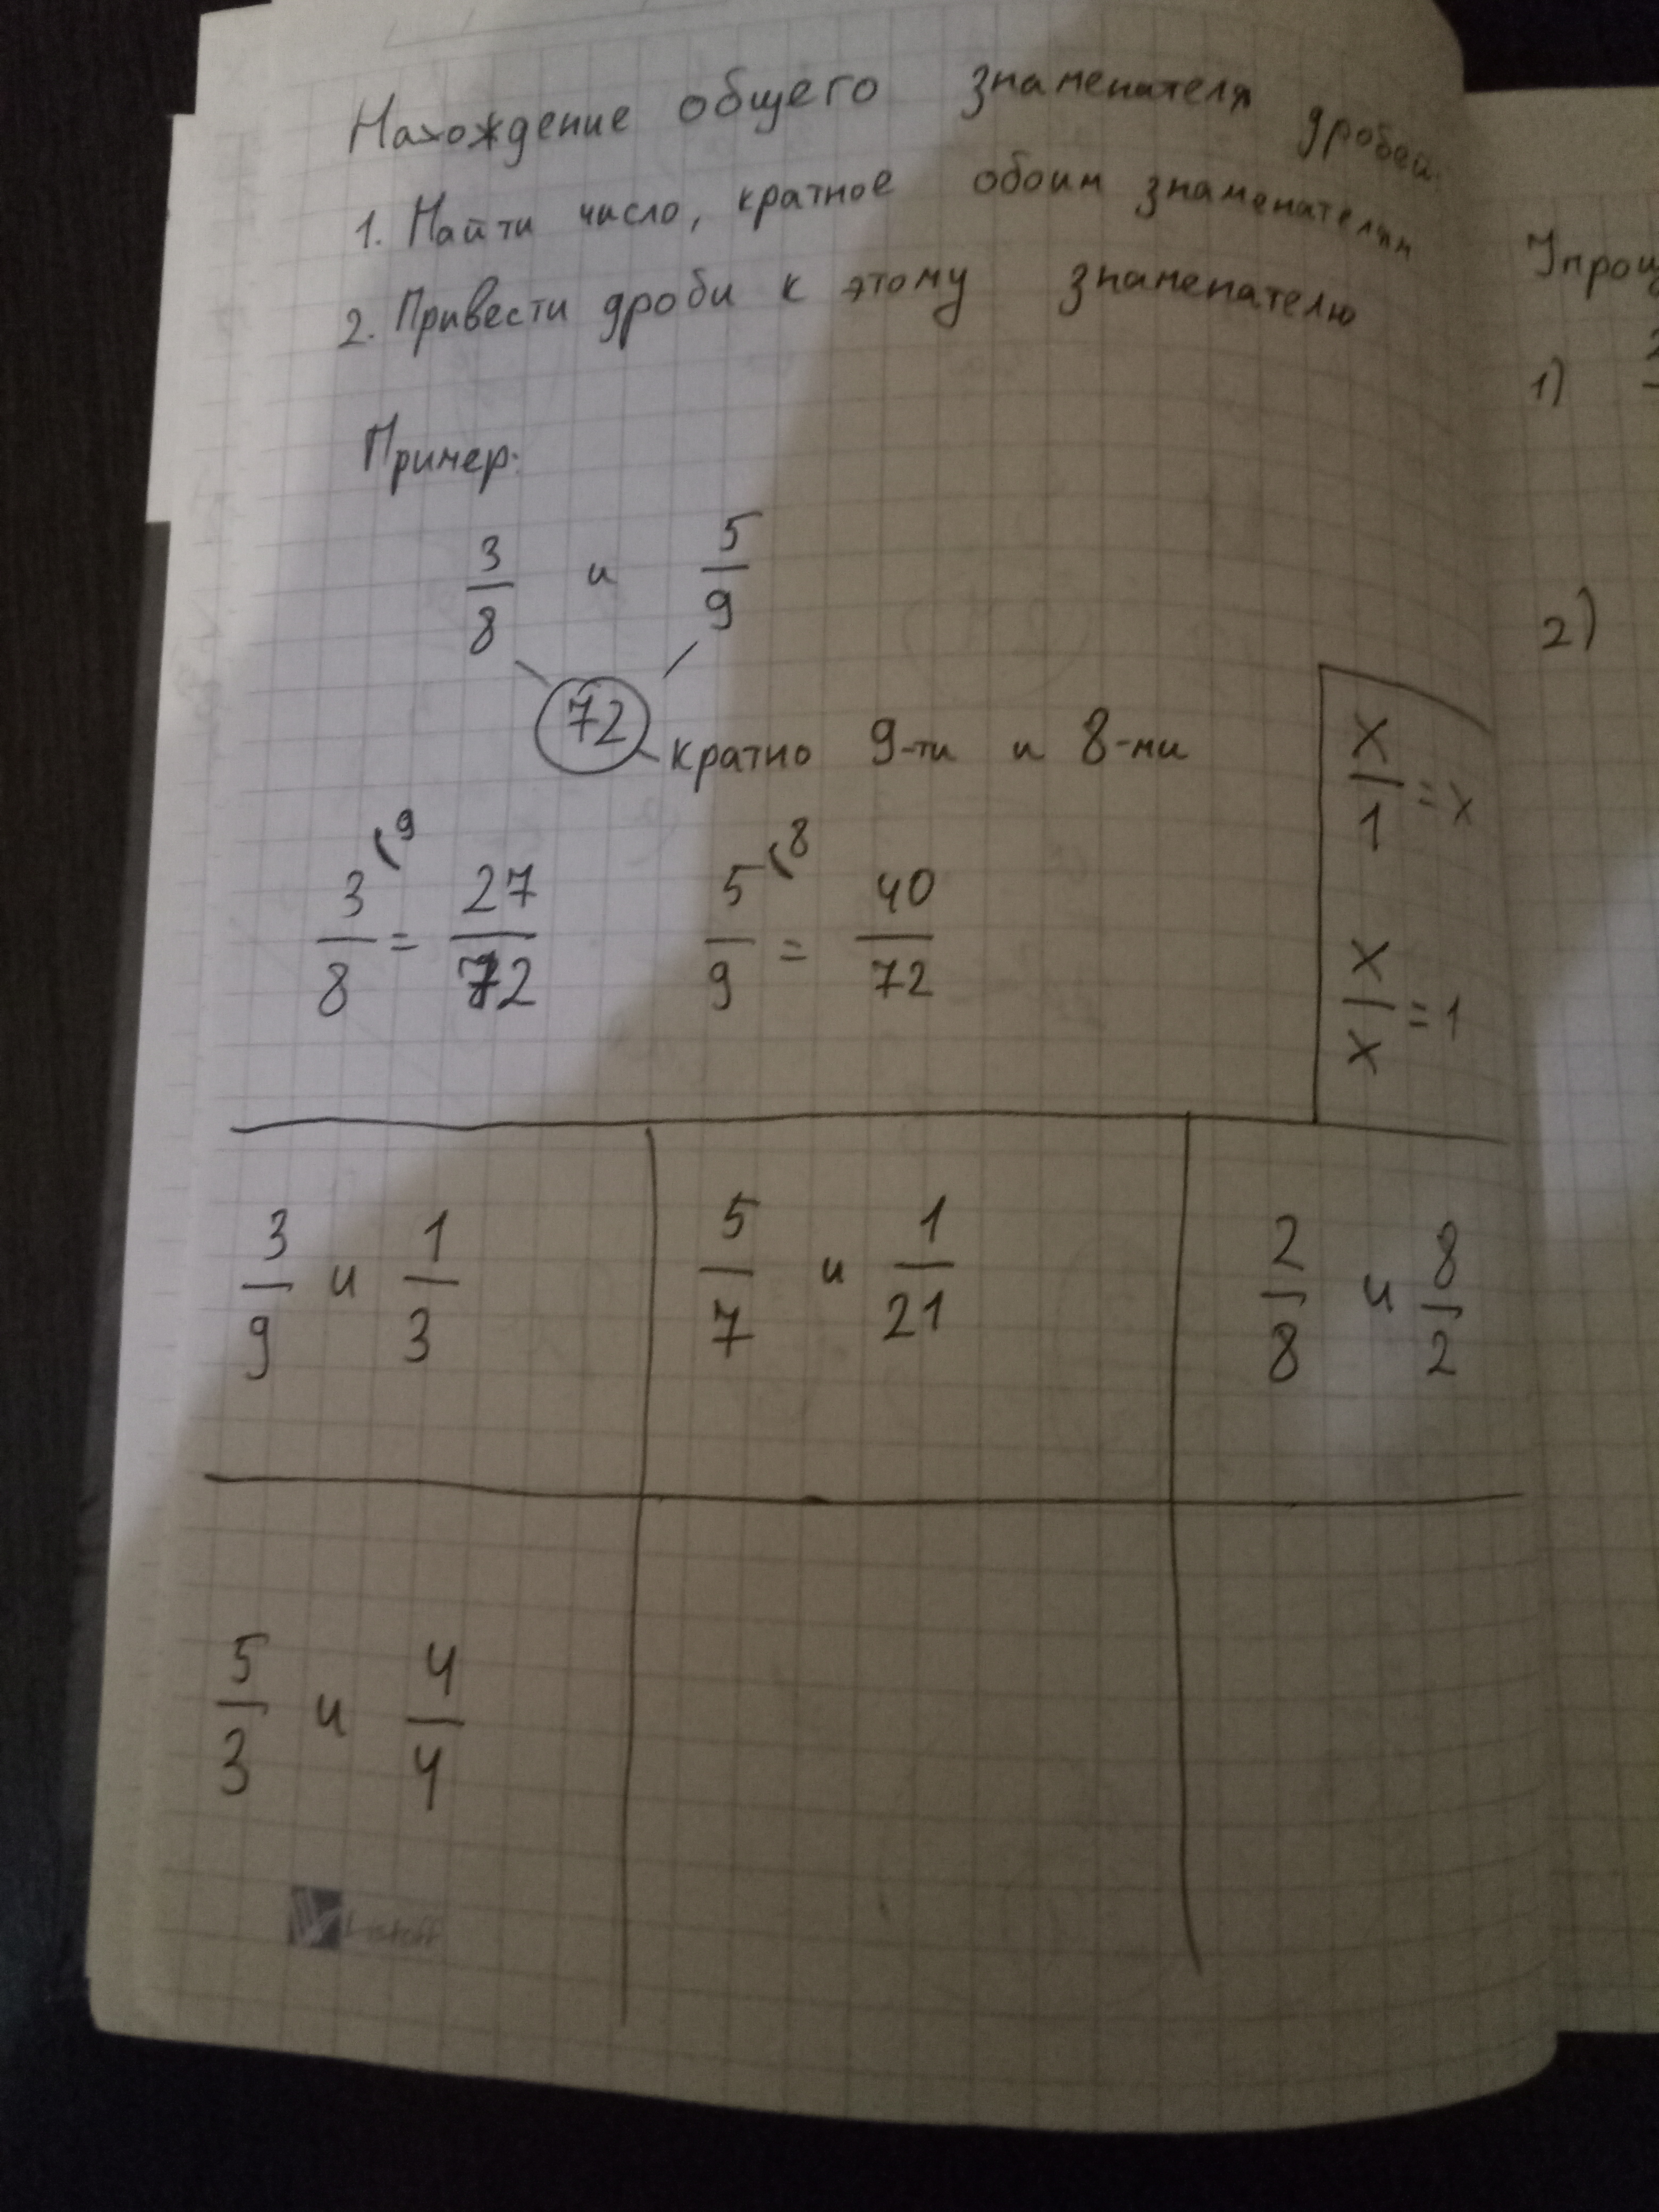 Нахождение общего знаменателя дробей.
1. Найти число, кратное обоим знаменателям
2. Привести дроби к этому знаменателю
Пример:
3/8 и 5/9
72 кратно 9-ти и 8-ми
3/8 (9 = 27/72 5/9 (8 = 40/72
x/1 = x
x/x = 1
3/9 и 1/3
5/7 и 1/21
2/8 и 8/2
5/3 и 4/4
Listoff
1)
2)